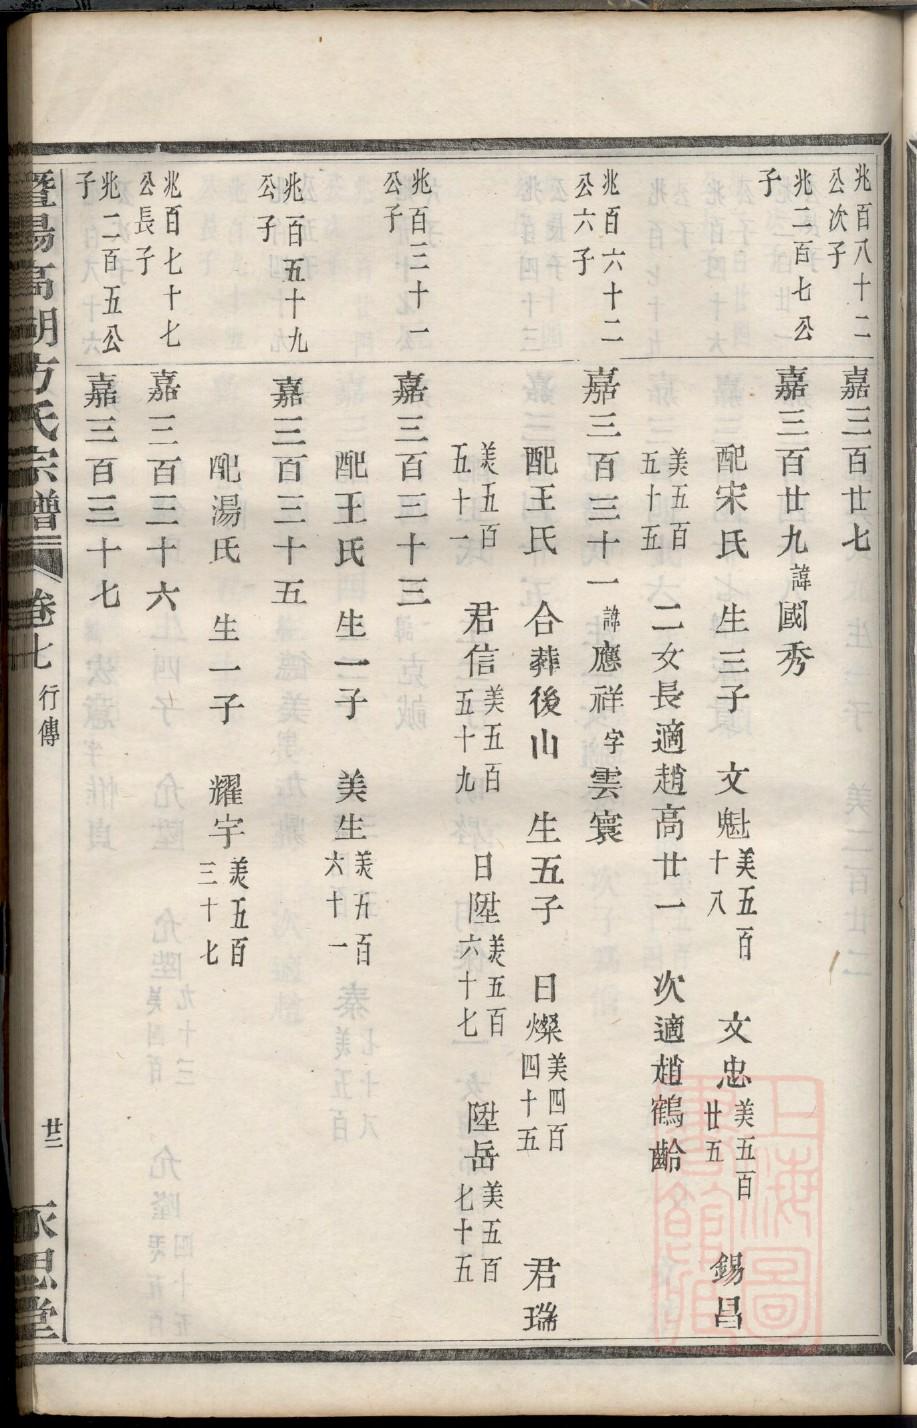 兆百八十二公次子
嘉三百廿七
兆二百七公子
嘉三百廿九諱國秀
配宋氏 生三子 文魁美五百十八 文忠美五百廿五 錫昌
美五百五十五 二女長適趙高廿一 次適趙鶴齡
兆百六十二公六子
嘉三百三十一諱應祥字雲寰
配王氏 合葬後山 生五子 日燦美四百四十五 君瑞
美五百五十一 君信美五百五十九 日陞美五百六十七 陞岳美五百七十五
兆百三十一公子
嘉三百三十三
兆百五十九公子
嘉三百三十五
配王氏 生一子 美生美五百六十一
配湯氏 生一子 耀宇美五百三十七
兆百七十七公長子
嘉三百三十六
兆二百五公子
嘉三百三十七
暨陽高湖方氏宗譜 卷七 行傳 廿三 永思堂
上海圖書館藏